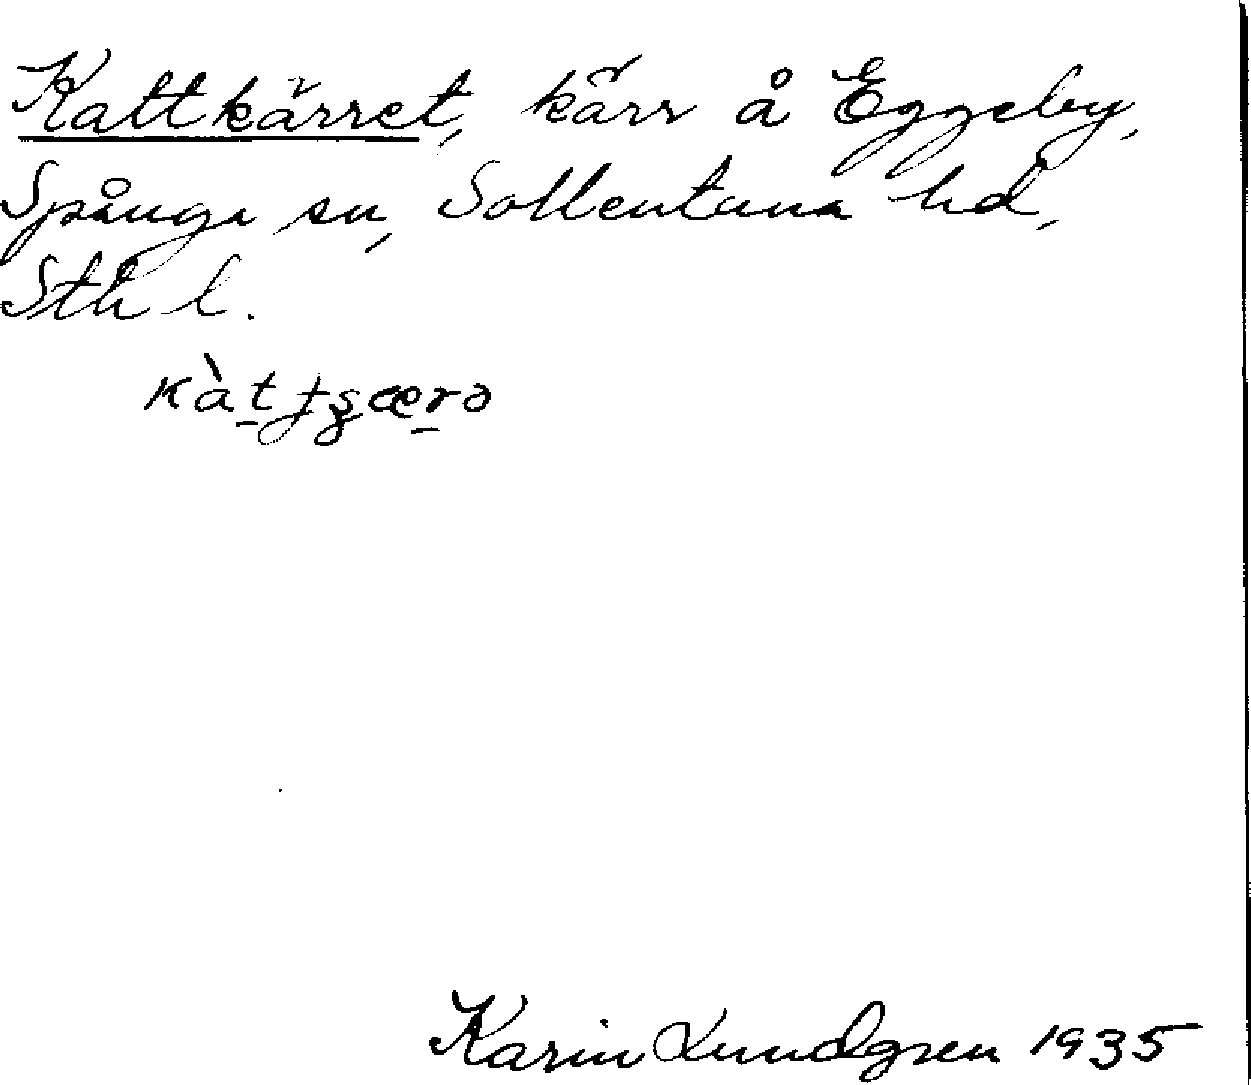 Kattkärret, kärr å Eggeby,
Spånga sn, Sollentuna hd,
Sth l.
Karin Lundgren 1935